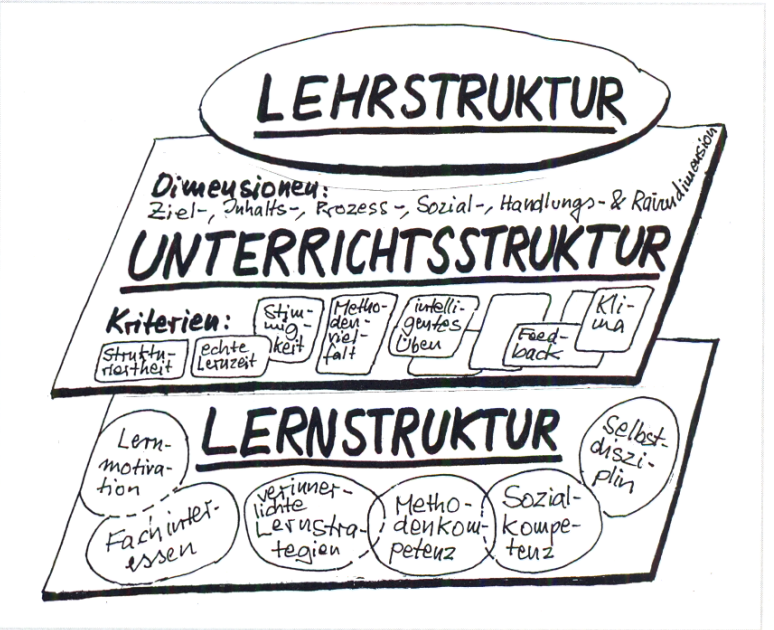 LEHRSTRUKTUR
Dimensionen:
Ziel-, Inhalts-, Prozess-, Sozial-, Handlungs- & Raumdimension
UNTERRICHTSSTRUKTUR
Kriterien:
Struktu-
riertheit
echte
Lernzeit
Stim-
mig-
keit
Metho-
den-
viel-
falt
intelli-
gentes
Üben
Feed-
back
Kli-
ma
LERNSTRUKTUR
Lern-
motiva-
tion
Fachinter-
essen
verinner-
lichte
Lernstra-
tegien
Metho-
denkom-
petenz
Sozial-
kompe-
tenz
Selbst-
diszi-
plin